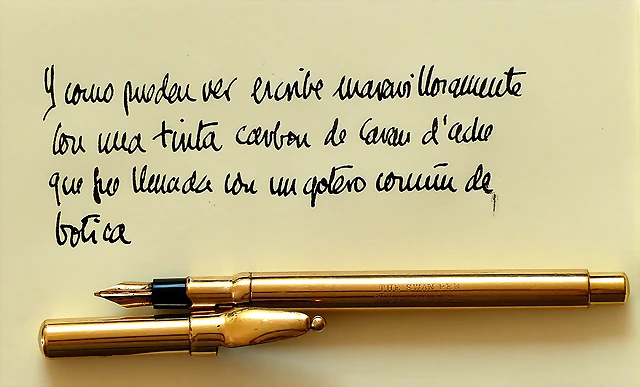 Y como pueden ver escribe maravillosamente
con una tinta carbon de Caran d'ache
que fue llenada con un gotero común de
botica
THE SWAN PEN